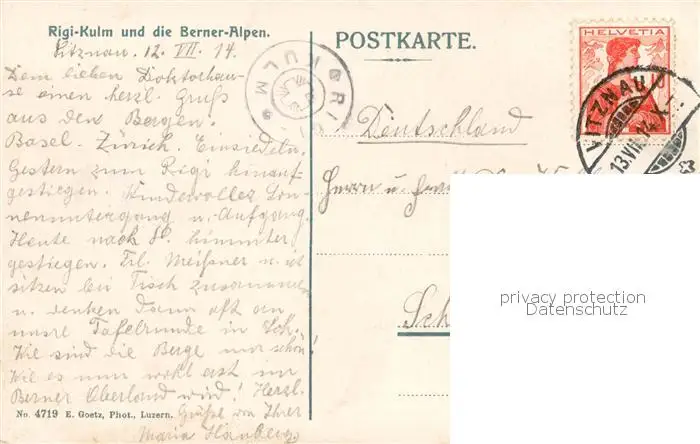 Rigi-Kulm und die Berner-Alpen.
Vitznau. 12. VII. 14.
Dem lieben Doktorhau-
se einen herzl. Gruß
aus den Bergen.
Basel. Zürich. Einsiedeln.
Gestern zum Rigi hinauf-
gestiegen. Wundervoller Son-
nenuntergang u. -Aufgang.
Heute nach hinunter
gestiegen. Frl. Meißner u. ich
sitzen bei Tisch zusammen
u. denken dann oft an
unsre Tafelrunde in Sch.
Wie sind die Berge nur schön!
Wie es nun wohl erst im
Berner Oberland wird! Herzl.
Grüße von Ihrer
Maria
No. 4719 E. Goetz, Phot., Luzern.
RIGI KULM
POSTKARTE.
HELVETIA
VITZNAU
13.VII.14.
Deutschland
Herrn u. Frau
Sch
privacy protection
Datenschutz